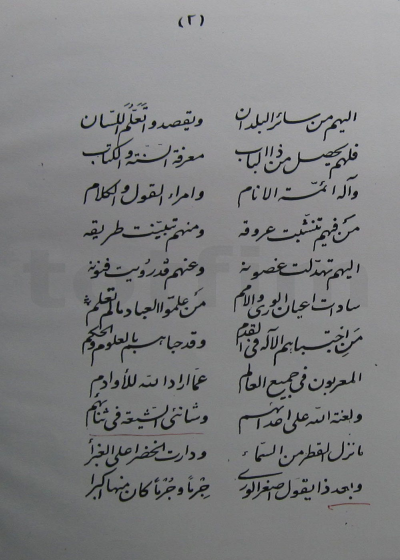 (٢)
اليهم من سائر البلدان ويقصدوا تَعَلُّمَ اللّسان
فلهم يحصل من ذا الباب معرفة السّنّة والكتاب
وآله ائمّة الانام وامراء القول والكلام
مَن فيهم تنشّبت عروقه ومنهم تبيّنت طريقه
اليهم تهدّلت غصونه وعنهم قد رويت فنونه
سادات اعيان الورى والامم مَن علّموا العباد مالم تعلم
مَن اجتباهم الاله فى القدم وقد حباهم بالعلوم والحكم
المعربون فى جميع العالم عمّا اراد الله للأوادم
ولعنة الله على اعدائهم وشانئى الشيعة فى ثنائهم
ما نزل القطر من السّماء ودارت الخضرا على الغبرأ
وبعد ذا يقول اصغر الورى جِرْماً وجُرْماً كان منها اكبرا